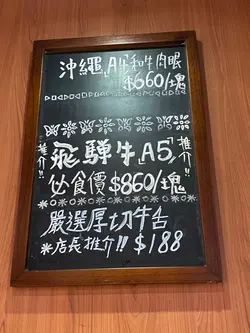 沖繩「A4」和牛肉眼
$660/塊
推介!!
飛騨牛「A5」
推介!!
必食價$860/塊
嚴選厚切牛舌
※店長推介!! $188